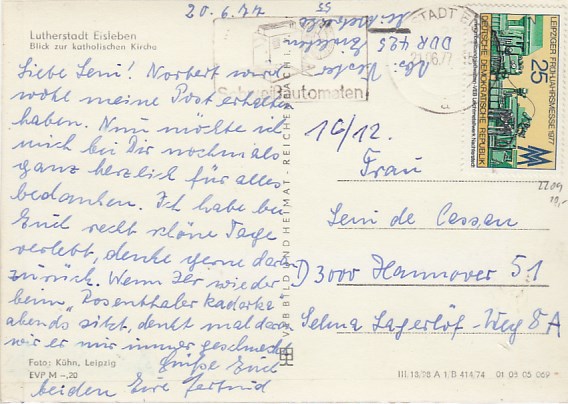 20. 6. 77
Lutherstadt Eisleben
Blick zur katholischen Kirche
Liebe Leni! Norbert wird
wohl meine Post erhalten
haben. Nun möchte ich
mich bei Dir nochmals
ganz herzlich für alles
bedanken. Ich habe bei
Euch recht schöne Tage
verlebt, denke gerne daran
zurück. Wenn Ihr wieder
beim „Rosenthaler Kadarka"
abends sitzt, denkt mal daran
wie er mir immer geschmeckt
Grüße Euch
beiden Eure Gertrud
Foto: Kühn, Leipzig
EVP M -,20
VEB BILD UND HEIMAT - REICHENBACH
DDR 425
55
automaten
21.06.77
LEIPZIGER FRÜHJAHRSMESSE 1977
25
DEUTSCHE DEMOKRATISCHE REPUBLIK
16/12.
Frau
Leni de Cassan
D 3000 Hannover 51
Selma Lagerlöf-Weg 8 A
2209
10,-
III/18/76 A 1/B 414/74 01 05 05 069